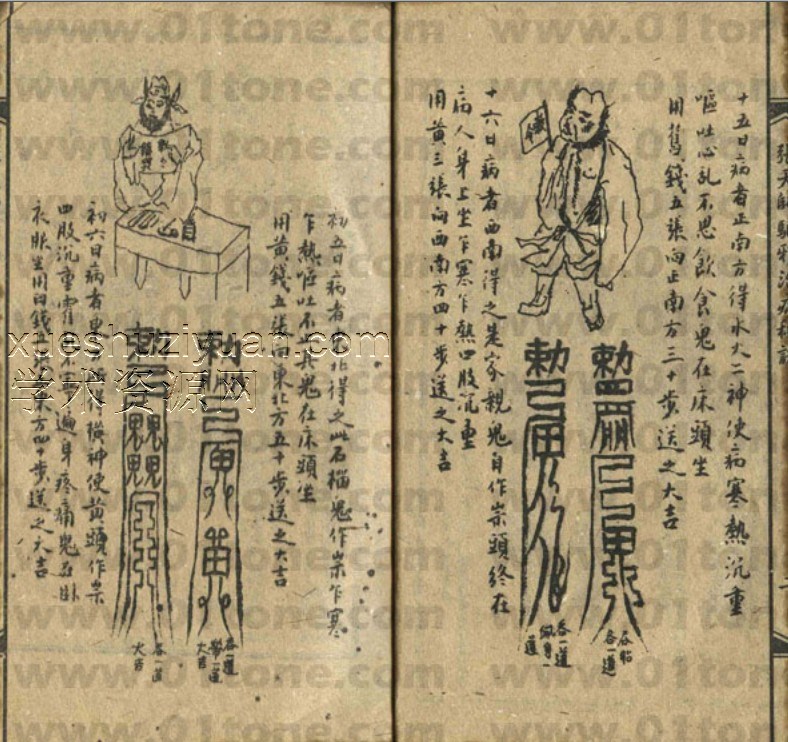 www.01tone.com
張天師驅邪治病
十五日病者正南方得水火二神使病寒熱沉重
嘔吐心乱不思飲食鬼在床頭坐
用錢五張向正南方三十步送之大吉
十六日病者西南得之是家親鬼自作祟頭終在
病人身上坐乍寒乍熱四肢沉重
用黃三張向西南方四十步送之大吉
勅
吞一道
勅
吞一道
佩身一道
初五日病者東北得之此石榴鬼作祟乍寒
乍熱嘔吐不止其鬼在床頭坐
用黃錢五張向東北方五十步送之大吉
初六日病者東得橫神使黃頭作祟
四肢沉重不遍身疼痛鬼在卧
衣服坐用白錢五東方四十步送之大吉
勅
吞一道
大吉
勅
吞一道
大吉
xueshuziyuan.com
学术资源网